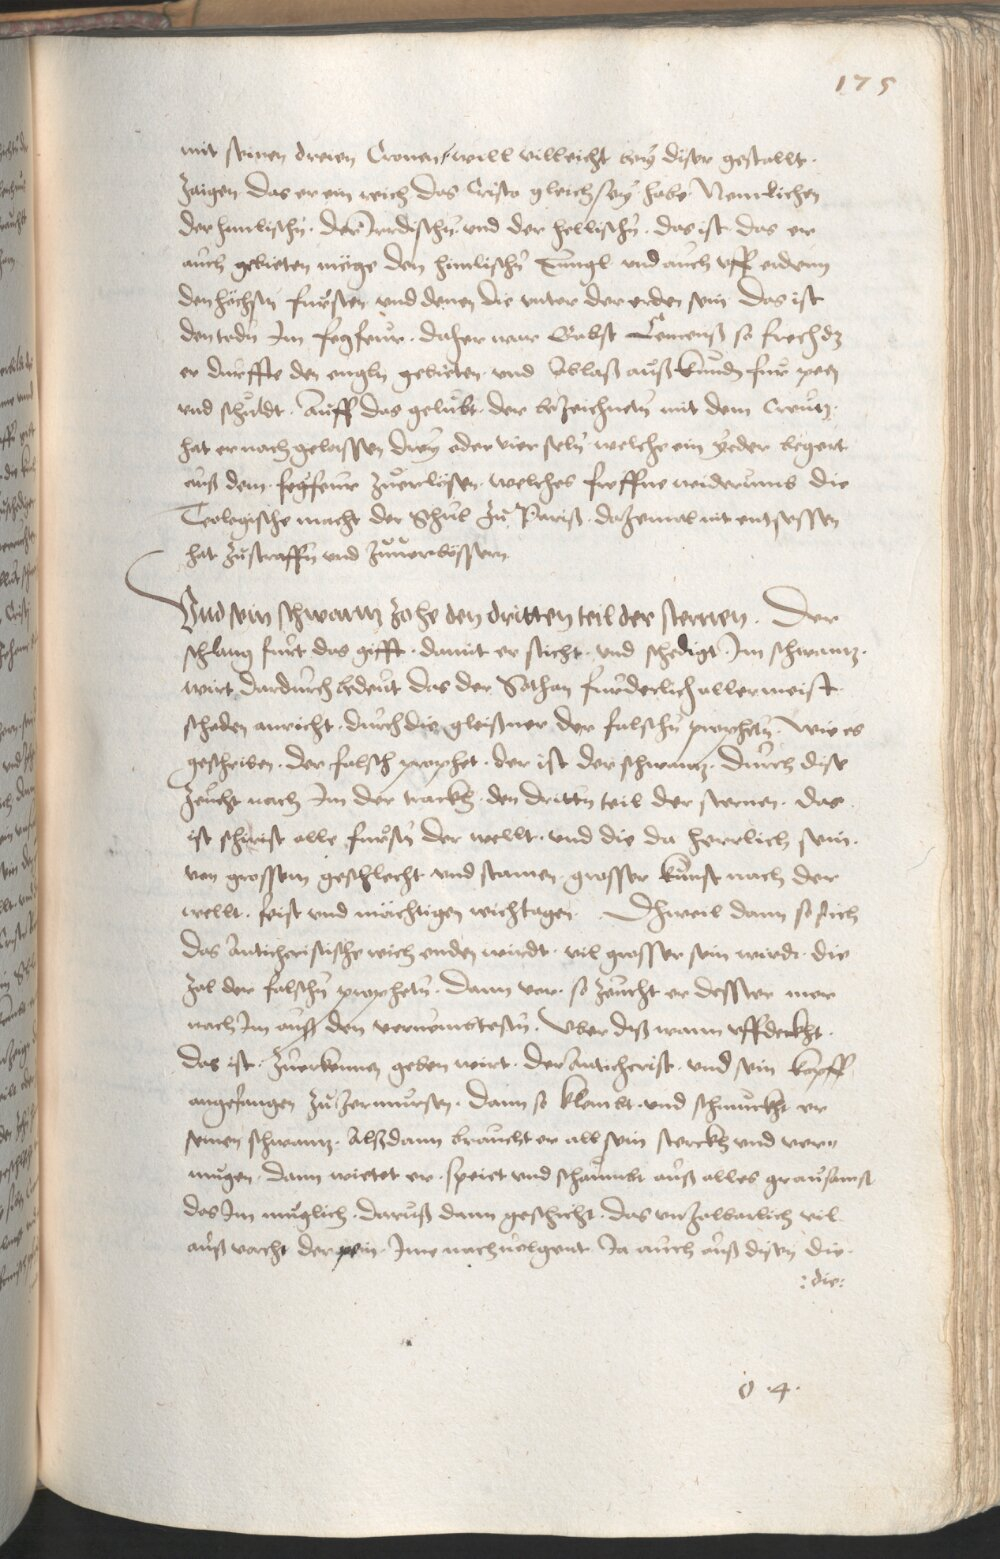 175
mit seinen dreien Cronen, will villeicht bey diser gestallt.
Zaigen das er ein reich das Cristo gleich sey habe Nemlichen
der himlischn. der Irrdischn. vnd der hellischn. das ist das er
auch gebieten möge den himlischn Enngl vnd auch vff erden
den höchsten fursten vnd denen die vnter der erden sein das ist
den todtn Im fegfeur. daher war Babst Clemenß so frech dz
er durffte den engln gebieten vnd Ablaß auß kunden fur peen
vnd schuldt. Auff das gelubt der bezeichneten mit dem Creutz.
hat er nach gelassen drey oder vier seln welche ein yeder begert
auß dem fegfeur zu erlösen welches freffne widerumb die
Teologische macht der Schul zu Pariß dazemal nit entsessen
hat zustraffn vnd zuuerbössern
Vnd sein schwantz zohe den dritten teil der sternen. Der
schlang furt das gifft. damit er sticht vnd schedigt Im schwantz.
wirt dardurch bedeut das der Sathan furderlich allermeist
schaden anricht. durch die gleißner der falschn prophetn. Wie es
geschriben. der falsch prophet. der ist der schwantz. durch dise
zeucht nach Im der trackh den drittn teil der sternen. das
ist schirist alle furstn der wellt. vnd die da herrlich sein.
von grossem geschlecht vnd stamen grosser kunst nach der
wellt. feist vnd mächtigen wichtagen. Dhweil dann so sich
das Anticheristische reich enden wirdt. vil grosser sein wirdt die
zal der falschn prophetn. dann vor. so zeucht er desster mer
nach Im auß den vernembstesten. Vber diß wann vffdeckht.
das ist. zuerkennen geben wirt. der Anticherist. vnd sein kopff
angefangen zu zermursen. dann so klembt vnd schmuckht er
seinen schwantz. Alßdann braucht er all sein sterckh vnd ver=
mugen. dann wietet er. speiet vnd schaumbt auß alles grausamst
das Im muglich. daruß dann geschicht. das vnzalbarlich vil
auß vorcht der pein Ime nachuolgent Ja auch auß disen die
: die:
o .4.